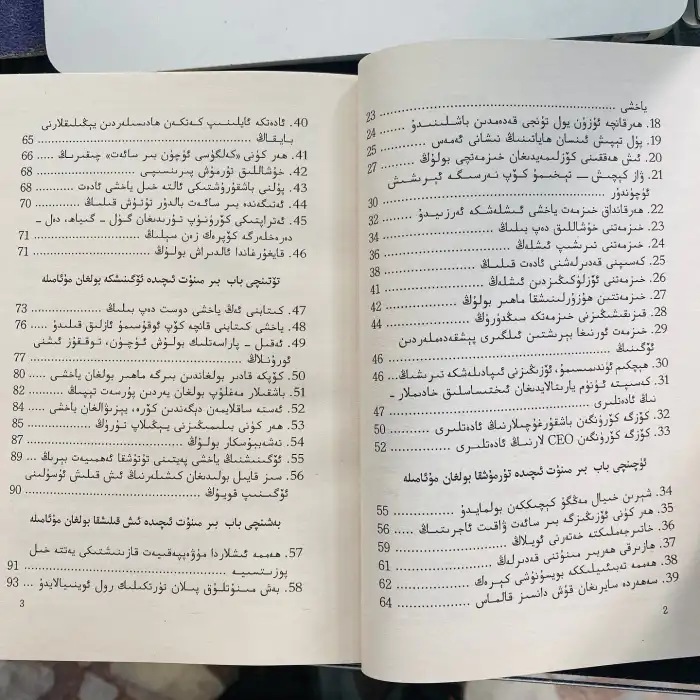 ياخشى ........ 23
18. ھەرقانچە ئۇزۇن يول تۇنجى قەدەمدىن باشلىنىدۇ 24
19. پۇل تېپىش ئىنسان ھاياتىنىڭ نىشانى ئەمەس ........ 25
20. ئىش ھەققىنى كۆزلىمەيدىغان خىزمەتچى بولۇڭ ........ 27
21. ۋاز كېچىش — تېخىمۇ كۆپ نەرسىگە ئېرىشىش
ئۈچۈندۇر ........ 30
22. ھەرقانداق خىزمەت ياخشى ئىشلەشكە ئەرزىيدۇ ........ 32
23. خىزمەتنى خۇشاللىق دەپ بىلىڭ ........ 34
24. خىزمەتنى تىرىشىپ ئىشلەڭ ........ 36
25. كەسىپنى قەدىرلەشنى ئادەت قىلىڭ ........ 38
26. خىزمەتنى ئۆزلۈكىڭىزدىن ئىشلەڭ ........ 41
27. خىزمەتتىن ھۇزۇرلىنىشقا ماھىر بولۇڭ ........ 42
28. قىزىقىشىڭىزنى خىزمەتكە سىڭدۈرۈڭ ........ 44
29. خىزمەت ئورنىغا بېرىشتىن ئىلگىرى پېشقەدەملەردىن
ئۆگىنىڭ ........ 46
30. ھېچكىم ئۇنىمىسىمۇ، ئۆزىڭىزنى ئىپادىلەشكە تىرىشىڭ ... 46
31. كەسىپتە ئۈنۈم يارىتالايدىغان ئىختىساسلىق خادىملار -
نىڭ ئادەتلىرى ........ 47
32. كۆزگە كۆرۈنگەن باشقۇرغۇچىلارنىڭ ئادەتلىرى ........ 50
33. كۆزگە كۆرۈنگەن CEO لارنىڭ ئادەتلىرى ........ 52
ئۈچىنچى باب بىر مىنۇت ئىچىدە تۇرمۇشقا بولغان مۇئامىلە
34. شېرىن خىيال مەڭگۈ كېچىككەن بولمايدۇ ........ 55
35. ھەر كۈنى ئۆزىڭىزگە بىر سائەت ۋاقىت ئاجرىتىڭ ........ 56
36. خاتىرجەملىكتە خەتەرنى ئويلاڭ ........ 59
37. ھازىرقى ھەربىر مىنۇتنى قەدىرلەڭ ........ 61
38. ھەممە تەبىئىيلىككە بويسۇنۇشى كېرەك ........ 62
39. سەھەردە سايرىغان قۇش دانسىز قالماس ........ 64
2
40. ئادەتكە ئايلىنىپ كەتكەن ھادىسىلەردىن يېڭىلىقلارنى
بايقاڭ ........ 65
41. ھەر كۈنى «كەلگۈسى ئۈچۈن بىر سائەت» چىقىرىڭ ..... 66
42. خۇشاللىق تۇرمۇش پىرىنسىپى ........ 68
43. پۇلنى باشقۇرۇشتىكى ئالتە خىل ياخشى ئادەت ........ 68
44. ئەتىگەندە بىر سائەت بالدۇر تۇتۇش قىلىڭ ........ 70
45. ئەتراپتىكى كۆرۈنۈپ تۇرىدىغان گۈل - گىياھ، دەل -
دەرەخلەرگە كۆپرەك زەن سېلىڭ ........ 71
46. قايغۇرغاندا ئالدىراش بولۇڭ ........ 71
تۆتىنچى باب بىر مىنۇت ئىچىدە ئۆگىنىشكە بولغان مۇئامىلە
47. كىتابنى ئەڭ ياخشى دوست دەپ بىلىڭ ........ 73
48. ياخشى كىتابنى قانچە كۆپ ئوقۇسىمۇ ئازلىق قىلىدۇ ..... 76
49. ئەقىل - پاراسەتلىك بولۇش ئۈچۈن، توققۇز ئىشنى
ئورۇنلاڭ ........ 77
50. كۆپكە قادىر بولغاندىن بىرگە ماھىر بولغان ياخشى ..... 80
51. باشقىلار مەغلۇپ بولغان يەردىن پۇرسەت تېپىڭ ........ 82
52. ئەستە ساقلايمەن دېگەندىن كۆرە، يېزىۋالغان ياخشى ..... 84
53. ھەر كۈنى بىلىمىڭىزنى يېڭىلاپ تۇرۇڭ ........ 85
54. تەشەببۇسكار بولۇڭ ........ 87
55. ئۆگىنىشنىڭ ياخشى پەيتىنى تۇتۇشقا ئەھمىيەت بېرىڭ ... 89
56. سىز قايىل بولىدىغان كىشىلەرنىڭ ئىش قىلىش ئۇسۇلىنى
ئۆگىنىپ قويۇڭ ........ 90
بەشىنچى باب بىر مىنۇت ئىچىدە ئىش قىلىشقا بولغان مۇئامىلە
57. ھەممە ئىشلاردا مۇۋەپپەقىيەت قازىنىشتىكى يەتتە خىل
پوزىتسىيە ........ 91
58. بەش مىنۇتلۇق پىلان تۈرتكىلىك رول ئوينىيالايدۇ ... 93
3